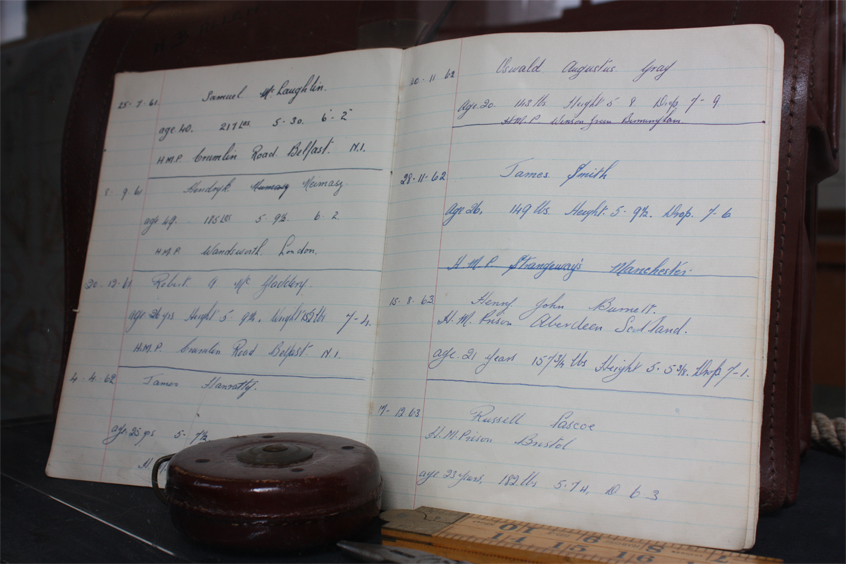 25-7-61 Samuel McLaughlin.
age 40. 217 Lbs 5-30. 6-2
H.M.P. Crumlin Road Belfast. N.I.
9 61 Hendryk Neimasz
age 49. 185 Lbs 5-9½ 6.2
H.M.P. Wandsworth London.
20-12-61 Robert A McGladdery.
age 26 yrs Height 5 9½. Weight 152 lbs 7-4.
H.M.P. Crumlin Road Belfast N.I.
4-4-62 James Hanratty.
age 25 yrs 5-7½
20-11-62 Oswald Augustus Gray
Age 20. 143 lbs Height 5 9 Drop 7-9
H.M.P. Winson Green Birmingham
28-11-62 James Smith
Age 26, 149 lbs. Height. 5-9½. Drop. 7-6
H.M.P. Strangeway's Manchester.
15-8-63 Henry John Burnett.
H.M. Prison Aberdeen Scotland.
age 21 years 157¾ lbs Height 5-5¾. Drop 7-1.
17-12-63 Russell Pascoe
H.M Prison Bristol
age 23 years, 182 lbs 5-7¼, D 6 3
14 15 16